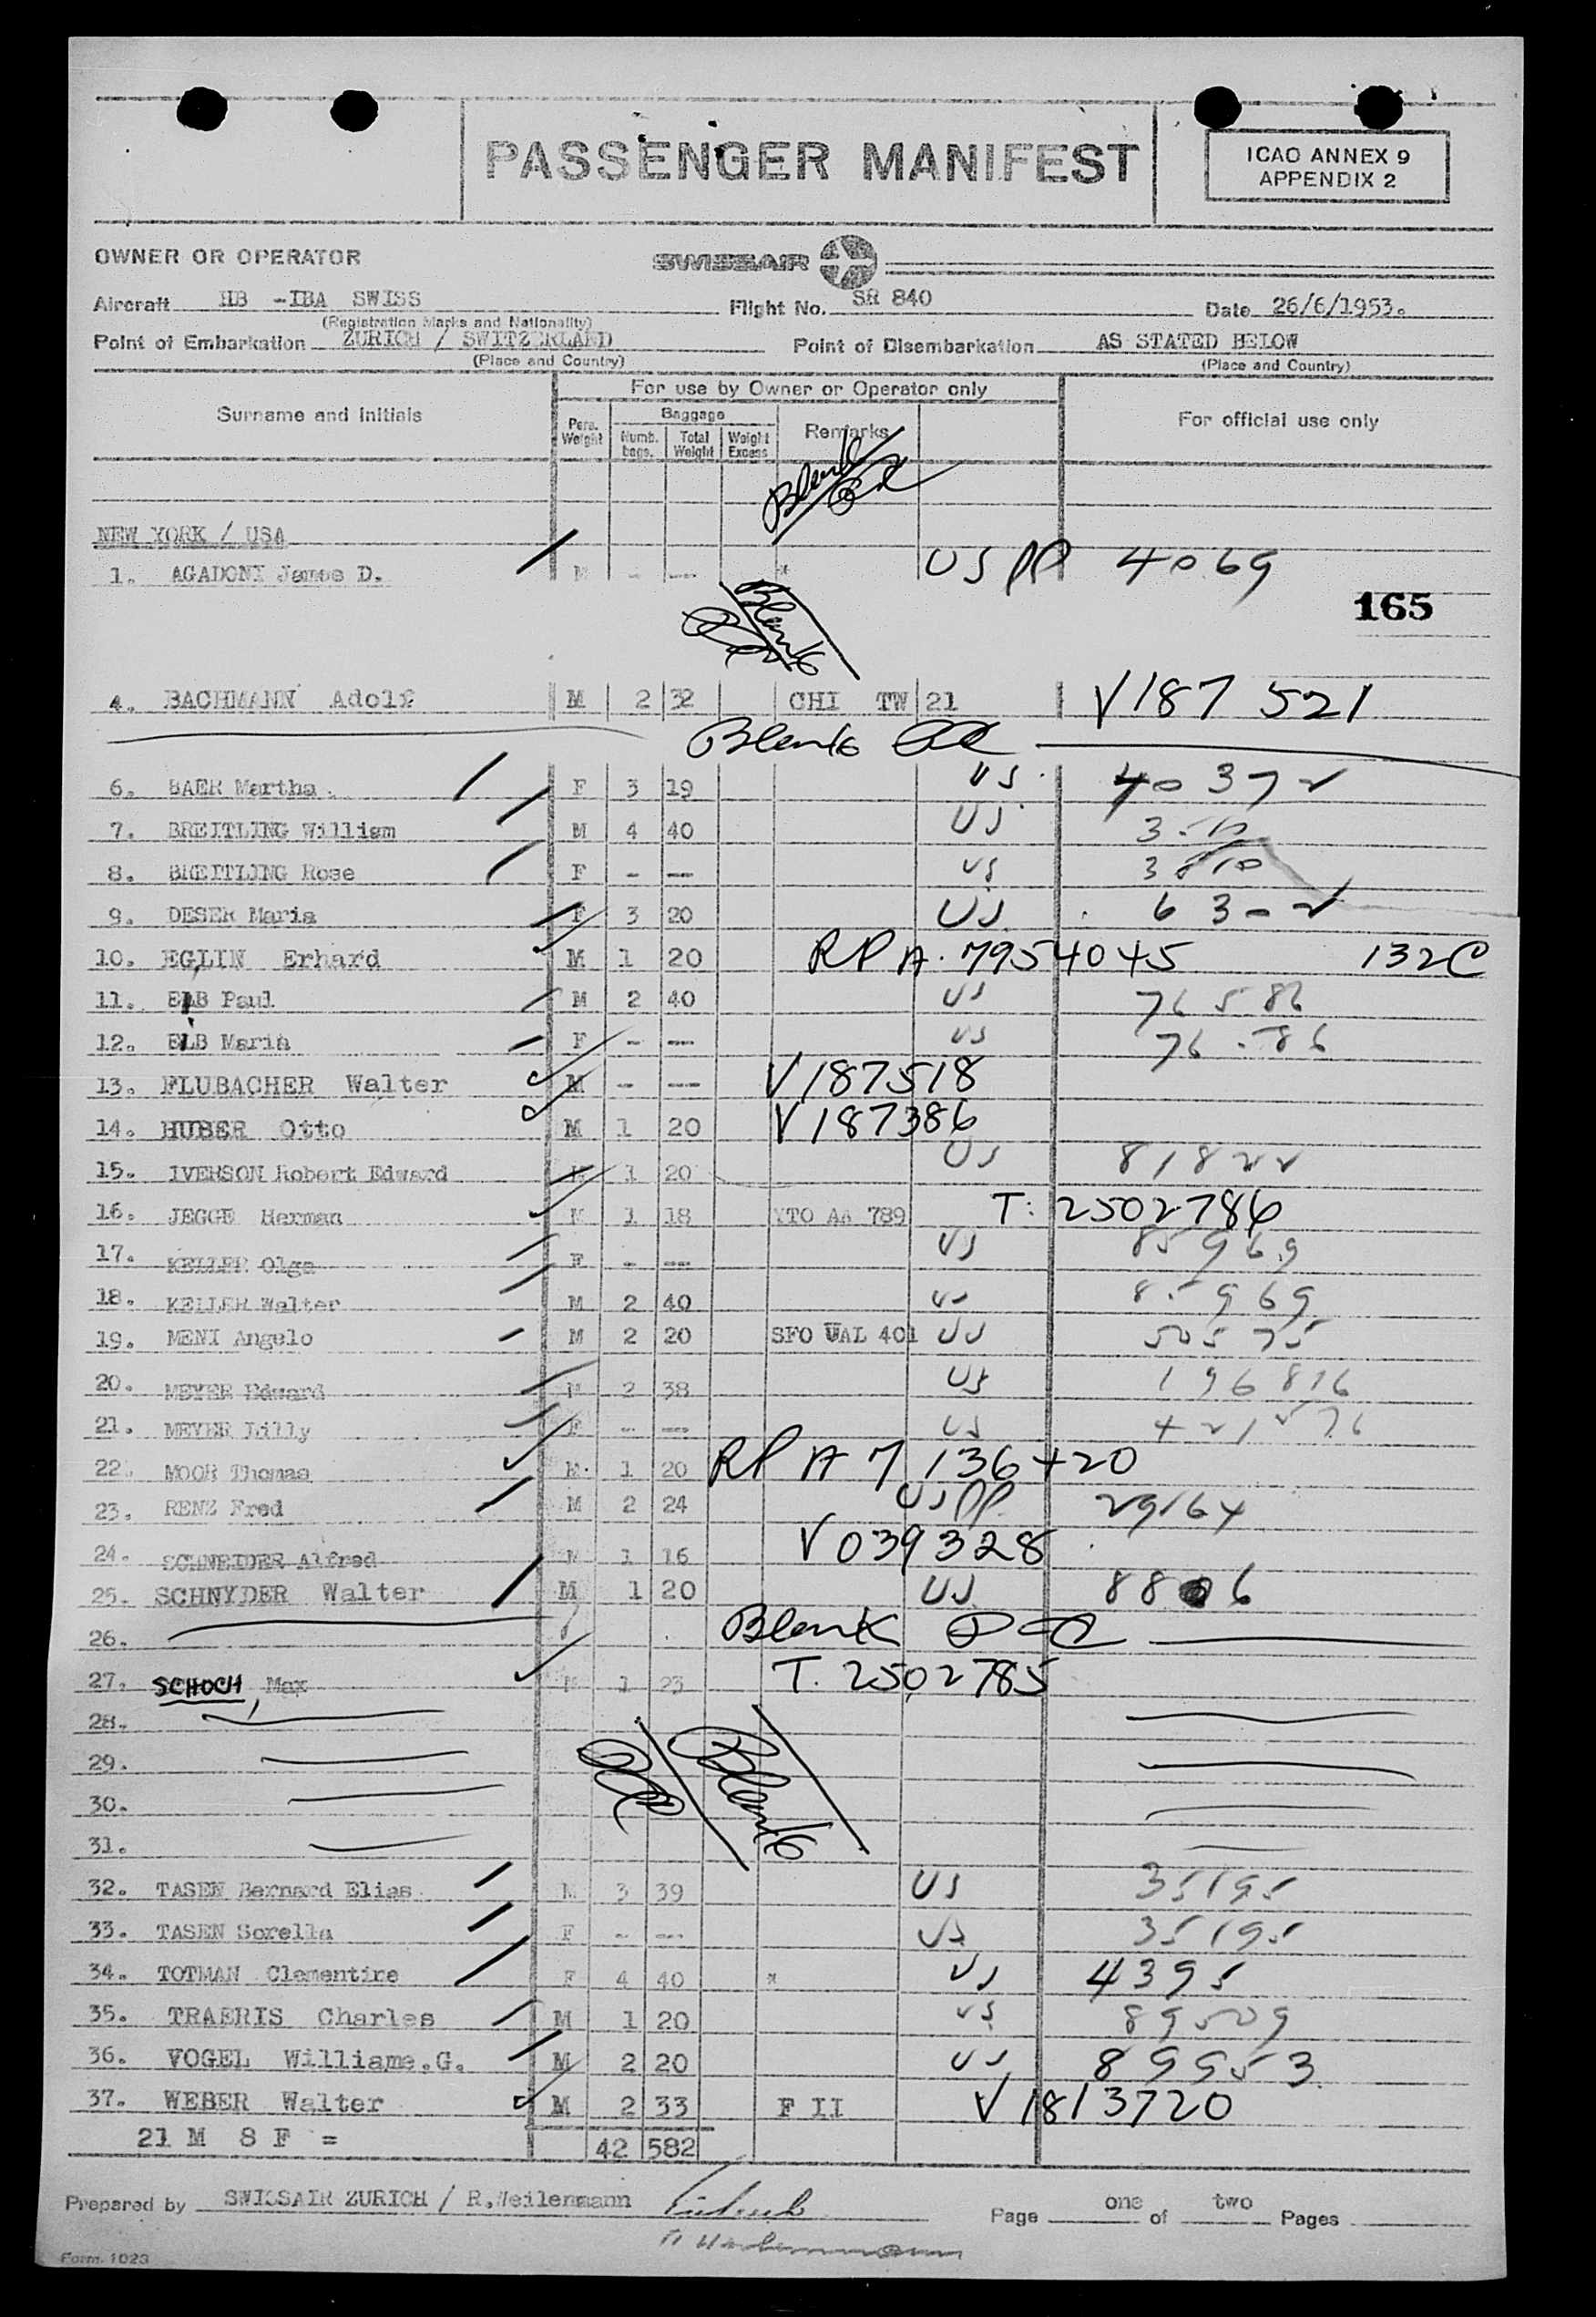 PASSENGER MANIFEST
ICAO ANNEX 9
APPENDIX 2
OWNER OR OPERATOR
SWISSAIR
Aircraft HB -IBA SWISS Flight No. SR 840 Date 26/6/1953.
(Registration Marks and Nationality)
Point of Embarkation ZURICH / SWITZERLAND Point of Disembarkation AS STATED BELOW
(Place and Country) (Place and Country)
For use by Owner or Operator only
Surname and initials Pers. Weight Baggage Numb. bags. Total Weight Weight Excess Remarks For official use only
Blank
NEW YORK / USA
1. AGADONI James D. M - --- * US PP 4069
165
Blank
4. BACHMANN Adolf M 2 32 CHI TW 21 V187 521
Blank
6. BAER Martha. F 3 19 US 40372
7. BREITLING William M 4 40 US
8. BREITLING Rose F - --- US 3810
9. DESER Maria F 3 20 US
10. EGLIN Erhard M 1 20 RP A. 7954045 132C
11. Paul M 2 40 US 76586
12. Maria F - --- US
13. FLUBACHER Walter M - --- V187518
14. HUBER Otto M 1 20 V187386
15. IVERSON Robert Edward M 1 20 US 81822
16. JEGGE Herman M 1 18 YTO AA 789 T: 2502786
17. KELLER Olga F - --- US 85969
18. KELLER Walter M 2 40 US 85969
19. MENI Angelo M 2 20 SFO UAL 401 US 50575
20. MEYER Edward M 2 38 US 196816
21. MEYER Lilly F - --- US
22. MOOR Thomas M 1 20 RP A 7136420
23. RENZ Fred M 2 24 US PP 29164
24. SCHNEIDER Alfred M 1 16 V039328
25. SCHNYDER Walter M 1 20 US
26. Blank
27. SCHOCH, Max M 1 23 T. 2502785
28.
29.
30. Blank
31.
32. TASEN Bernard Elias M 3 39 US 35195
33. TASEN Sorella F - --- US 35195
34. TOTMAN Clementine F 4 40 * US 4395
35. TRAERIS Charles M 1 20 US 89509
36. VOGEL Williame.G. M 2 20 US 89953
37. WEBER Walter M 2 33 F II V1813720
21 M 8 F = 42 582
Prepared by SWISSAIR ZURICH / R.Weilenmann Page one of two Pages
Form. 1023